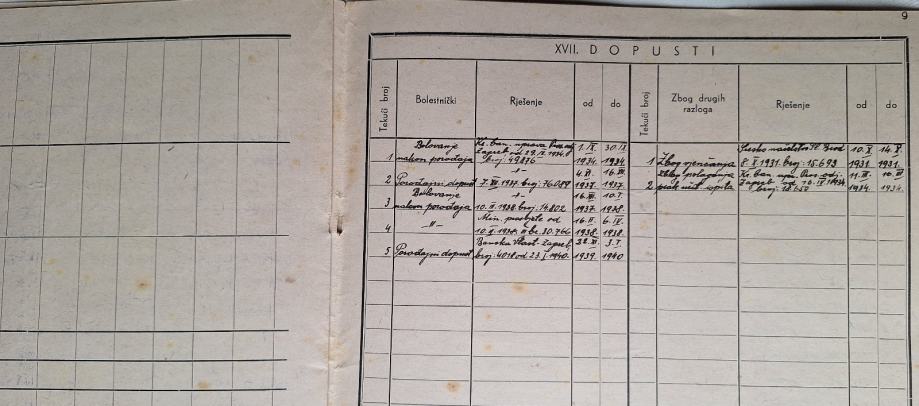 9
XVII. DOPUSTI
Tekući broj
Bolestnički
Rješenje
od
do
Tekući broj
Zbog drugih
razloga
Rješenje
od
do
Bolovanje
1 nakon porođaja
Kr. ban. uprava
Zagreb od
broj: 49876
1. IX. 30. IX
1934. 1934
2 Porođajni dopust
7. XII. 1937. broj: 76089
4. XI. 16. XII.
1937. 1937.
Bolovanje
3 nakon porođaja
10. II. 1938. broj: 14802
16. XII. 10. I.
1937. 1938.
4 -"-
Min. prosvjete od
10. II. 1938. II br. 30.766
16. II. 6. IV.
1938. 1938.
5 Porođajni dopust
Banska vlast Zagreb
broj: 4018 od 23. I. 1940.
22. XI. 3. I.
1939. 1940
1 Zbog vjenčanja
8. V. 1931. broj: 15.693
10. V. 14. V.
1931. 1931.
Zbog polaganja
2 prakt. ispita
Kr. ban. upr. Pros. odj.
Zagreb od
broj:
11. III. 16. III
1934. 1934.